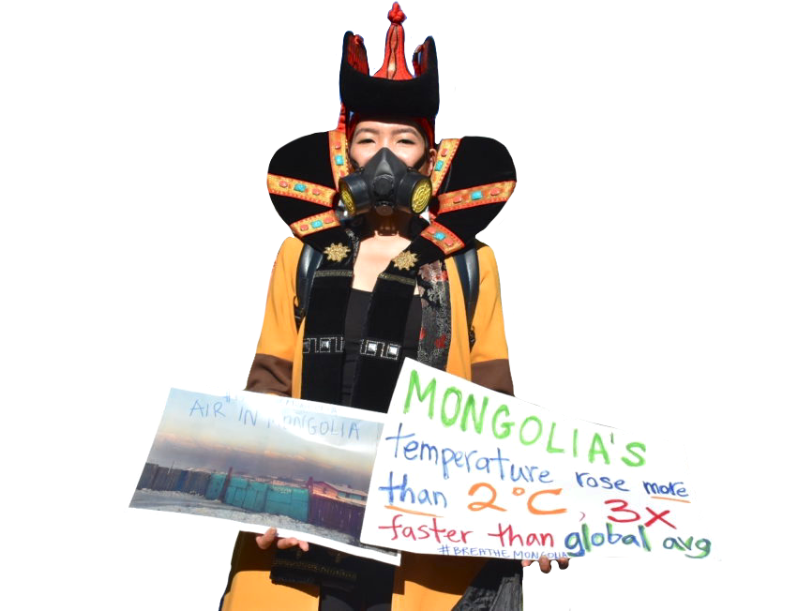 AIR IN MONGOLIA
MONGOLIA'S
temperature rose more
than 2°C, 3X
faster than global avg
#BREATHE MONGOLIA